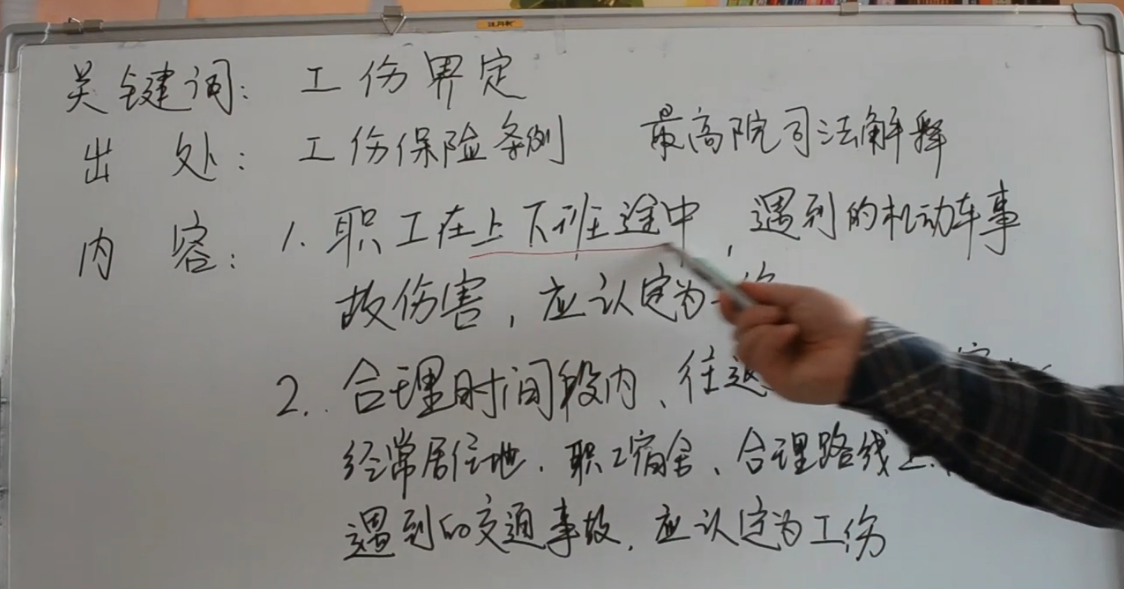 关键词: 工伤界定
出处: 工伤保险条例 最高院司法解释
内容: 1. 职工在上下班途中,遇到的机动车事
故伤害,应认定为工伤
2. 合理时间段内、往返
经常居住地、职工宿舍、合理路线上
遇到的交通事故,应认定为工伤